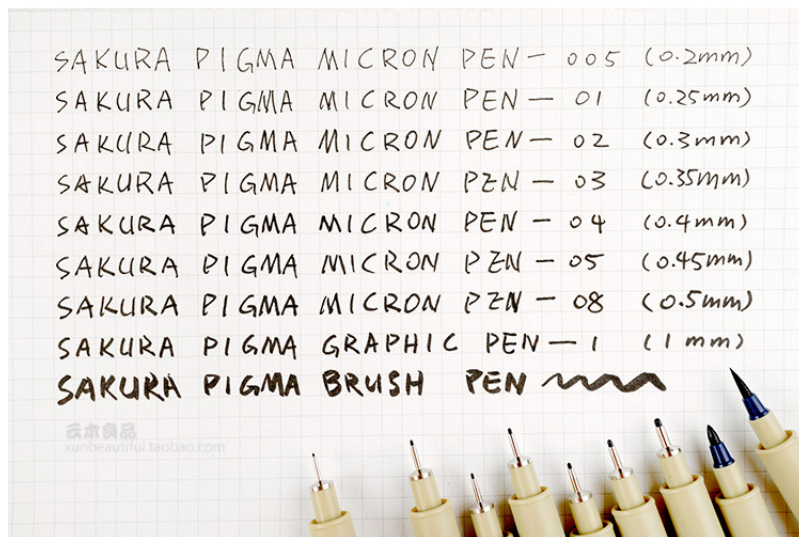 SAKURA PIGMA MICRON PEN — 005 (0.2mm)
SAKURA PIGMA MICRON PEN — 01 (0.25mm)
SAKURA PIGMA MICRON PEN — 02 (0.3mm)
SAKURA PIGMA MICRON PEN — 03 (0.35mm)
SAKURA PIGMA MICRON PEN — 04 (0.4mm)
SAKURA PIGMA MICRON PEN — 05 (0.45mm)
SAKURA PIGMA MICRON PEN — 08 (0.5mm)
SAKURA PIGMA GRAPHIC PEN — 1 (1mm)
SAKURA PIGMA BRUSH PEN
云木良品
xunbeautiful.taobao.com